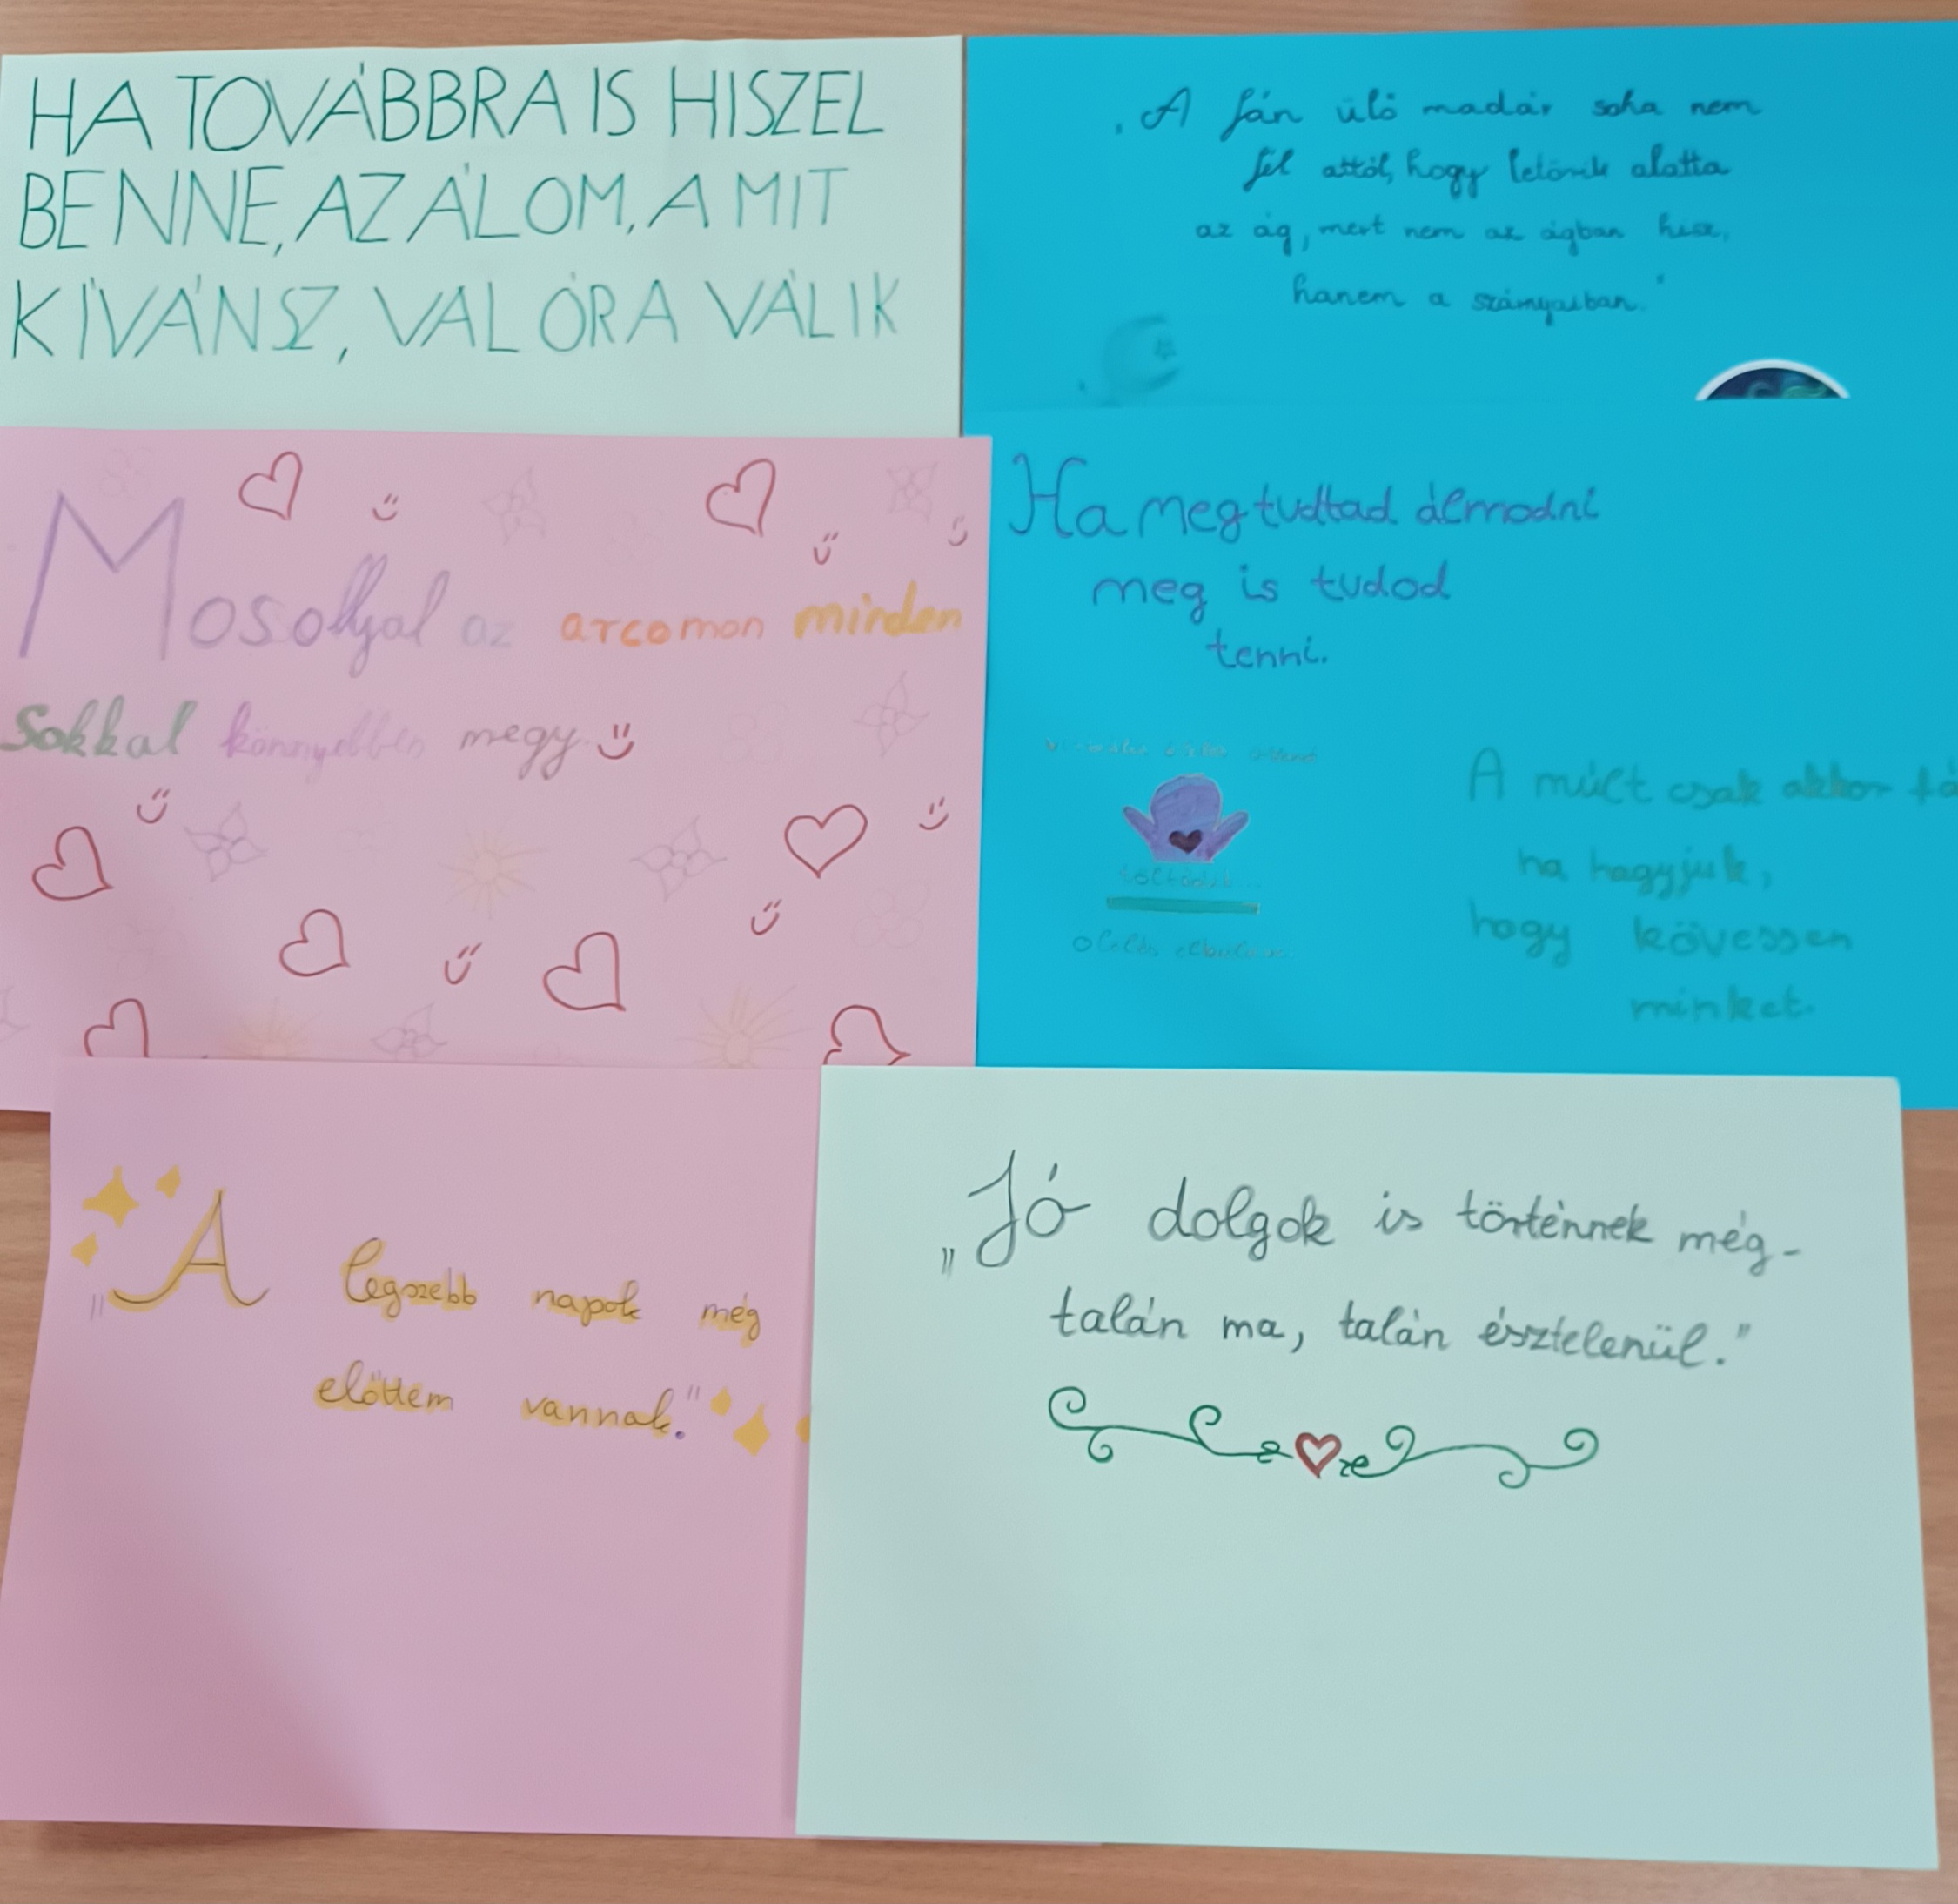 HA TOVÁBBRA IS HISZEL
BENNE, AZ ÁLOM, AMIT
KÍVÁNSZ, VALÓRA VÁLIK
„A fán ülő madár soha nem
fél attól, hogy letörik alatta
az ág, mert nem az ágban hisz,
hanem a szárnyaiban."
Mosollyal az arcomon minden
Sokkal könnyebben megy
Ha megtudtad álmodni
meg is tudod
tenni.
A múlt csak akkor
ha hagyjuk,
hogy kövessen
minket.
„A legszebb napok még
előttem vannak."
„Jó dolgok is történnek még-
talán ma, talán észtelenül."